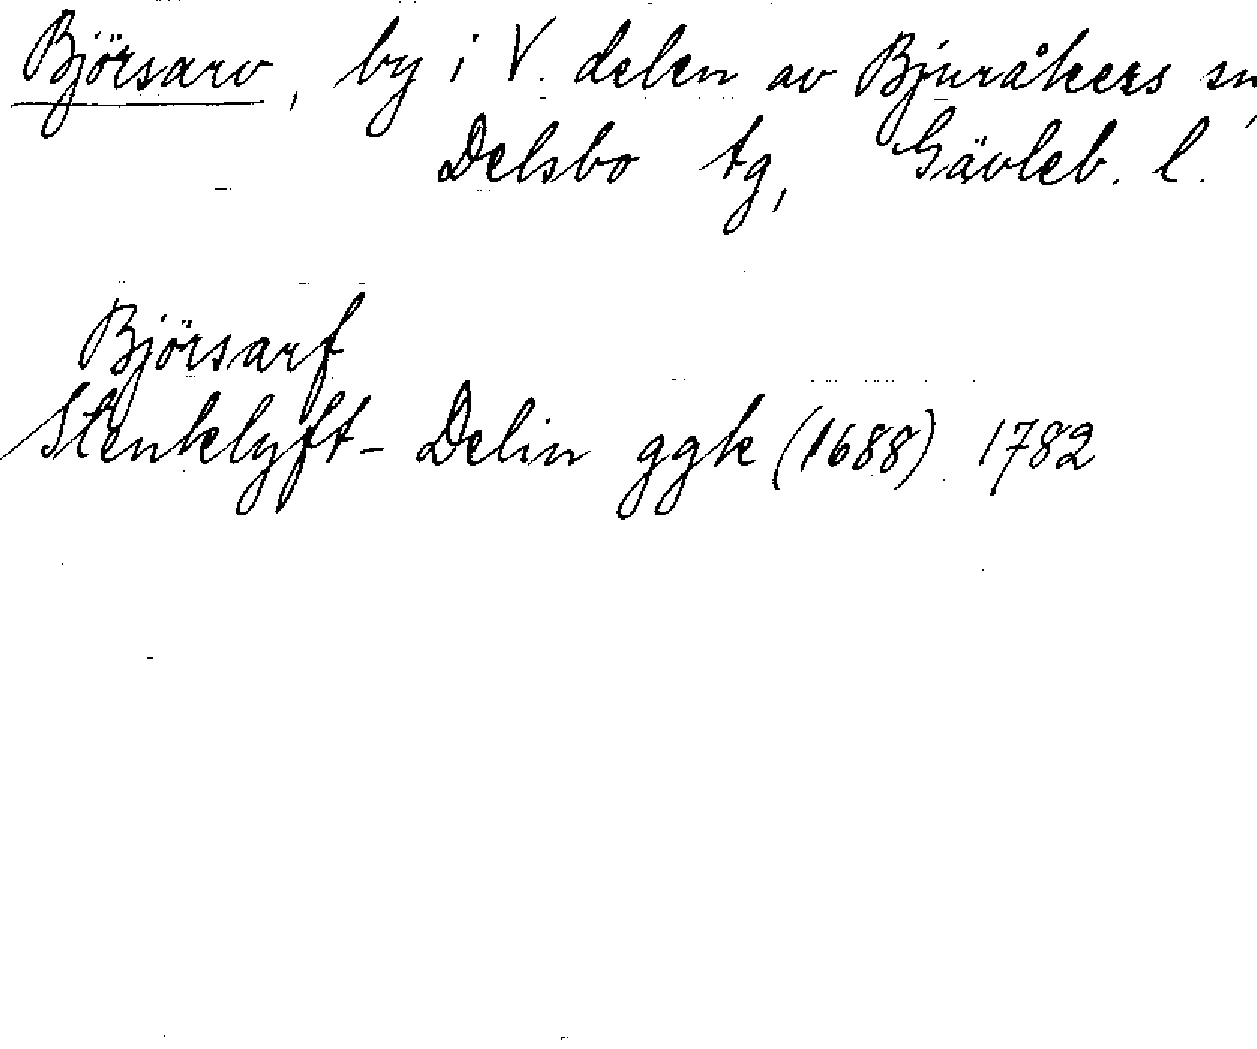 Björsarv, by i V. delen av Bjuråkers sn,
Delsbo tg, Gävleb. l.
Björsarf
Stenklyft- Delin ggk (1688) 1782